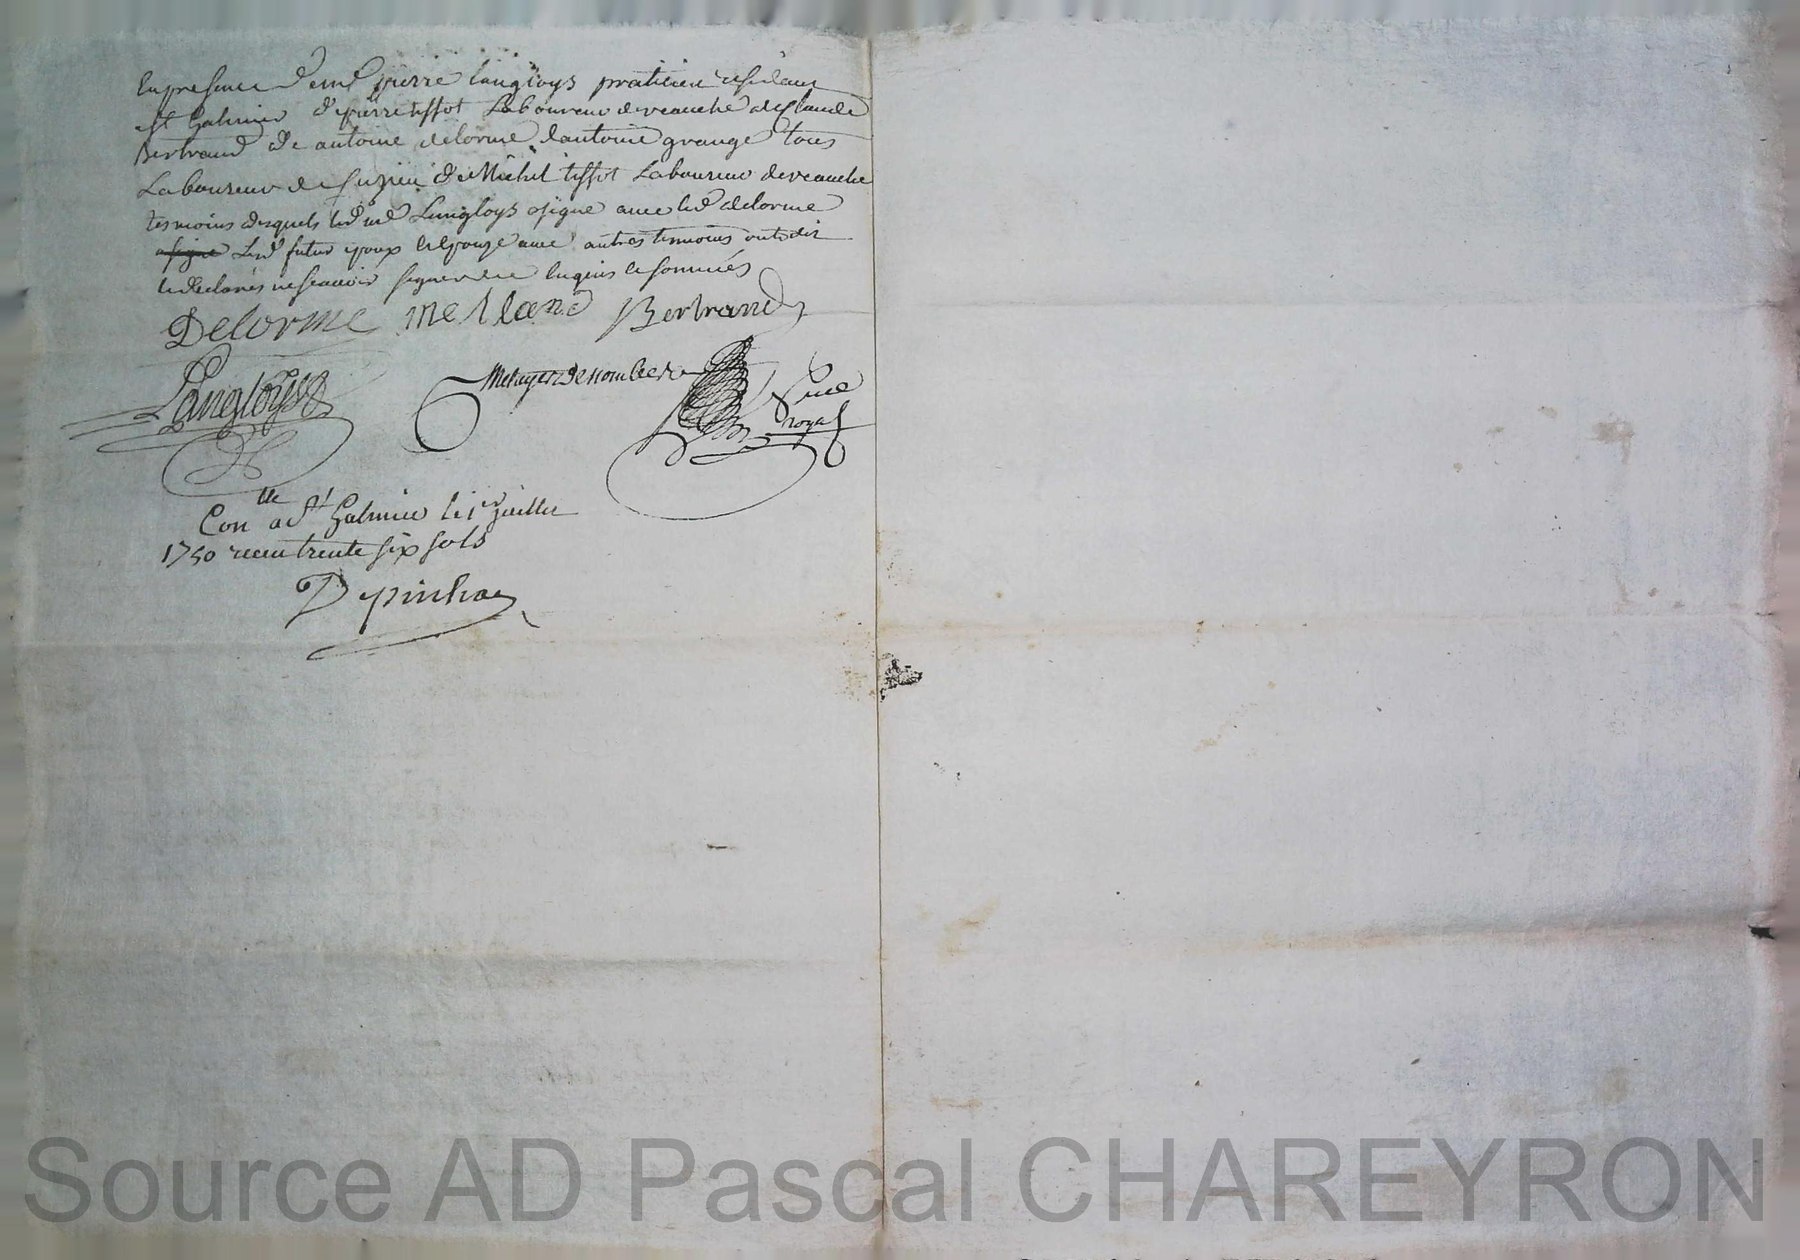 en presence de me pierre langloys praticien residant
st galmier de pierre tissot laboureur de veauche de claude
Bertrand de antoine delorme dantoine grange tous
laboureur de de Michel tissot laboureur de veauche
tesmoins desquels led me Langloys a signé avec led delorme
a signé led futur epoux avec autres temoins ont dit
signer de ce enquis et sommés
Delorme melland Bertrand
Langloys
not
royal
Conlle a St galmier le 1er juillet
1750 receu trente six sols
Source AD Pascal CHAREYRON